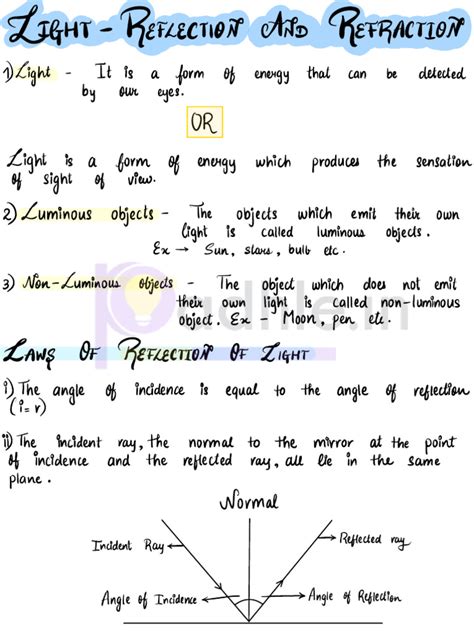 LIGHT - REFLECTION AND REFRACTION
1) Light - It is a form of energy that can be detected
by our eyes.
OR
Light is a form of energy which produces the sensation
of sight of view.
2) Luminous objects - The objects which emit their own
light is called luminous objects.
Ex → Sun, stars, bulb etc.
3) Non-Luminous objects - The object which does not emit
their own light is called non-luminous
object. Ex - Moon, pen etc.
padhle.in
LAWS OF REFLECTION OF LIGHT
i) The angle of incidence is equal to the angle of reflection
(i=r)
ii) The incident ray, the normal to the mirror at the point
of incidence and the reflected ray, all lie in the same
plane.
Normal
Incident Ray
Reflected ray
Angle of Incidence
Angle of Reflection